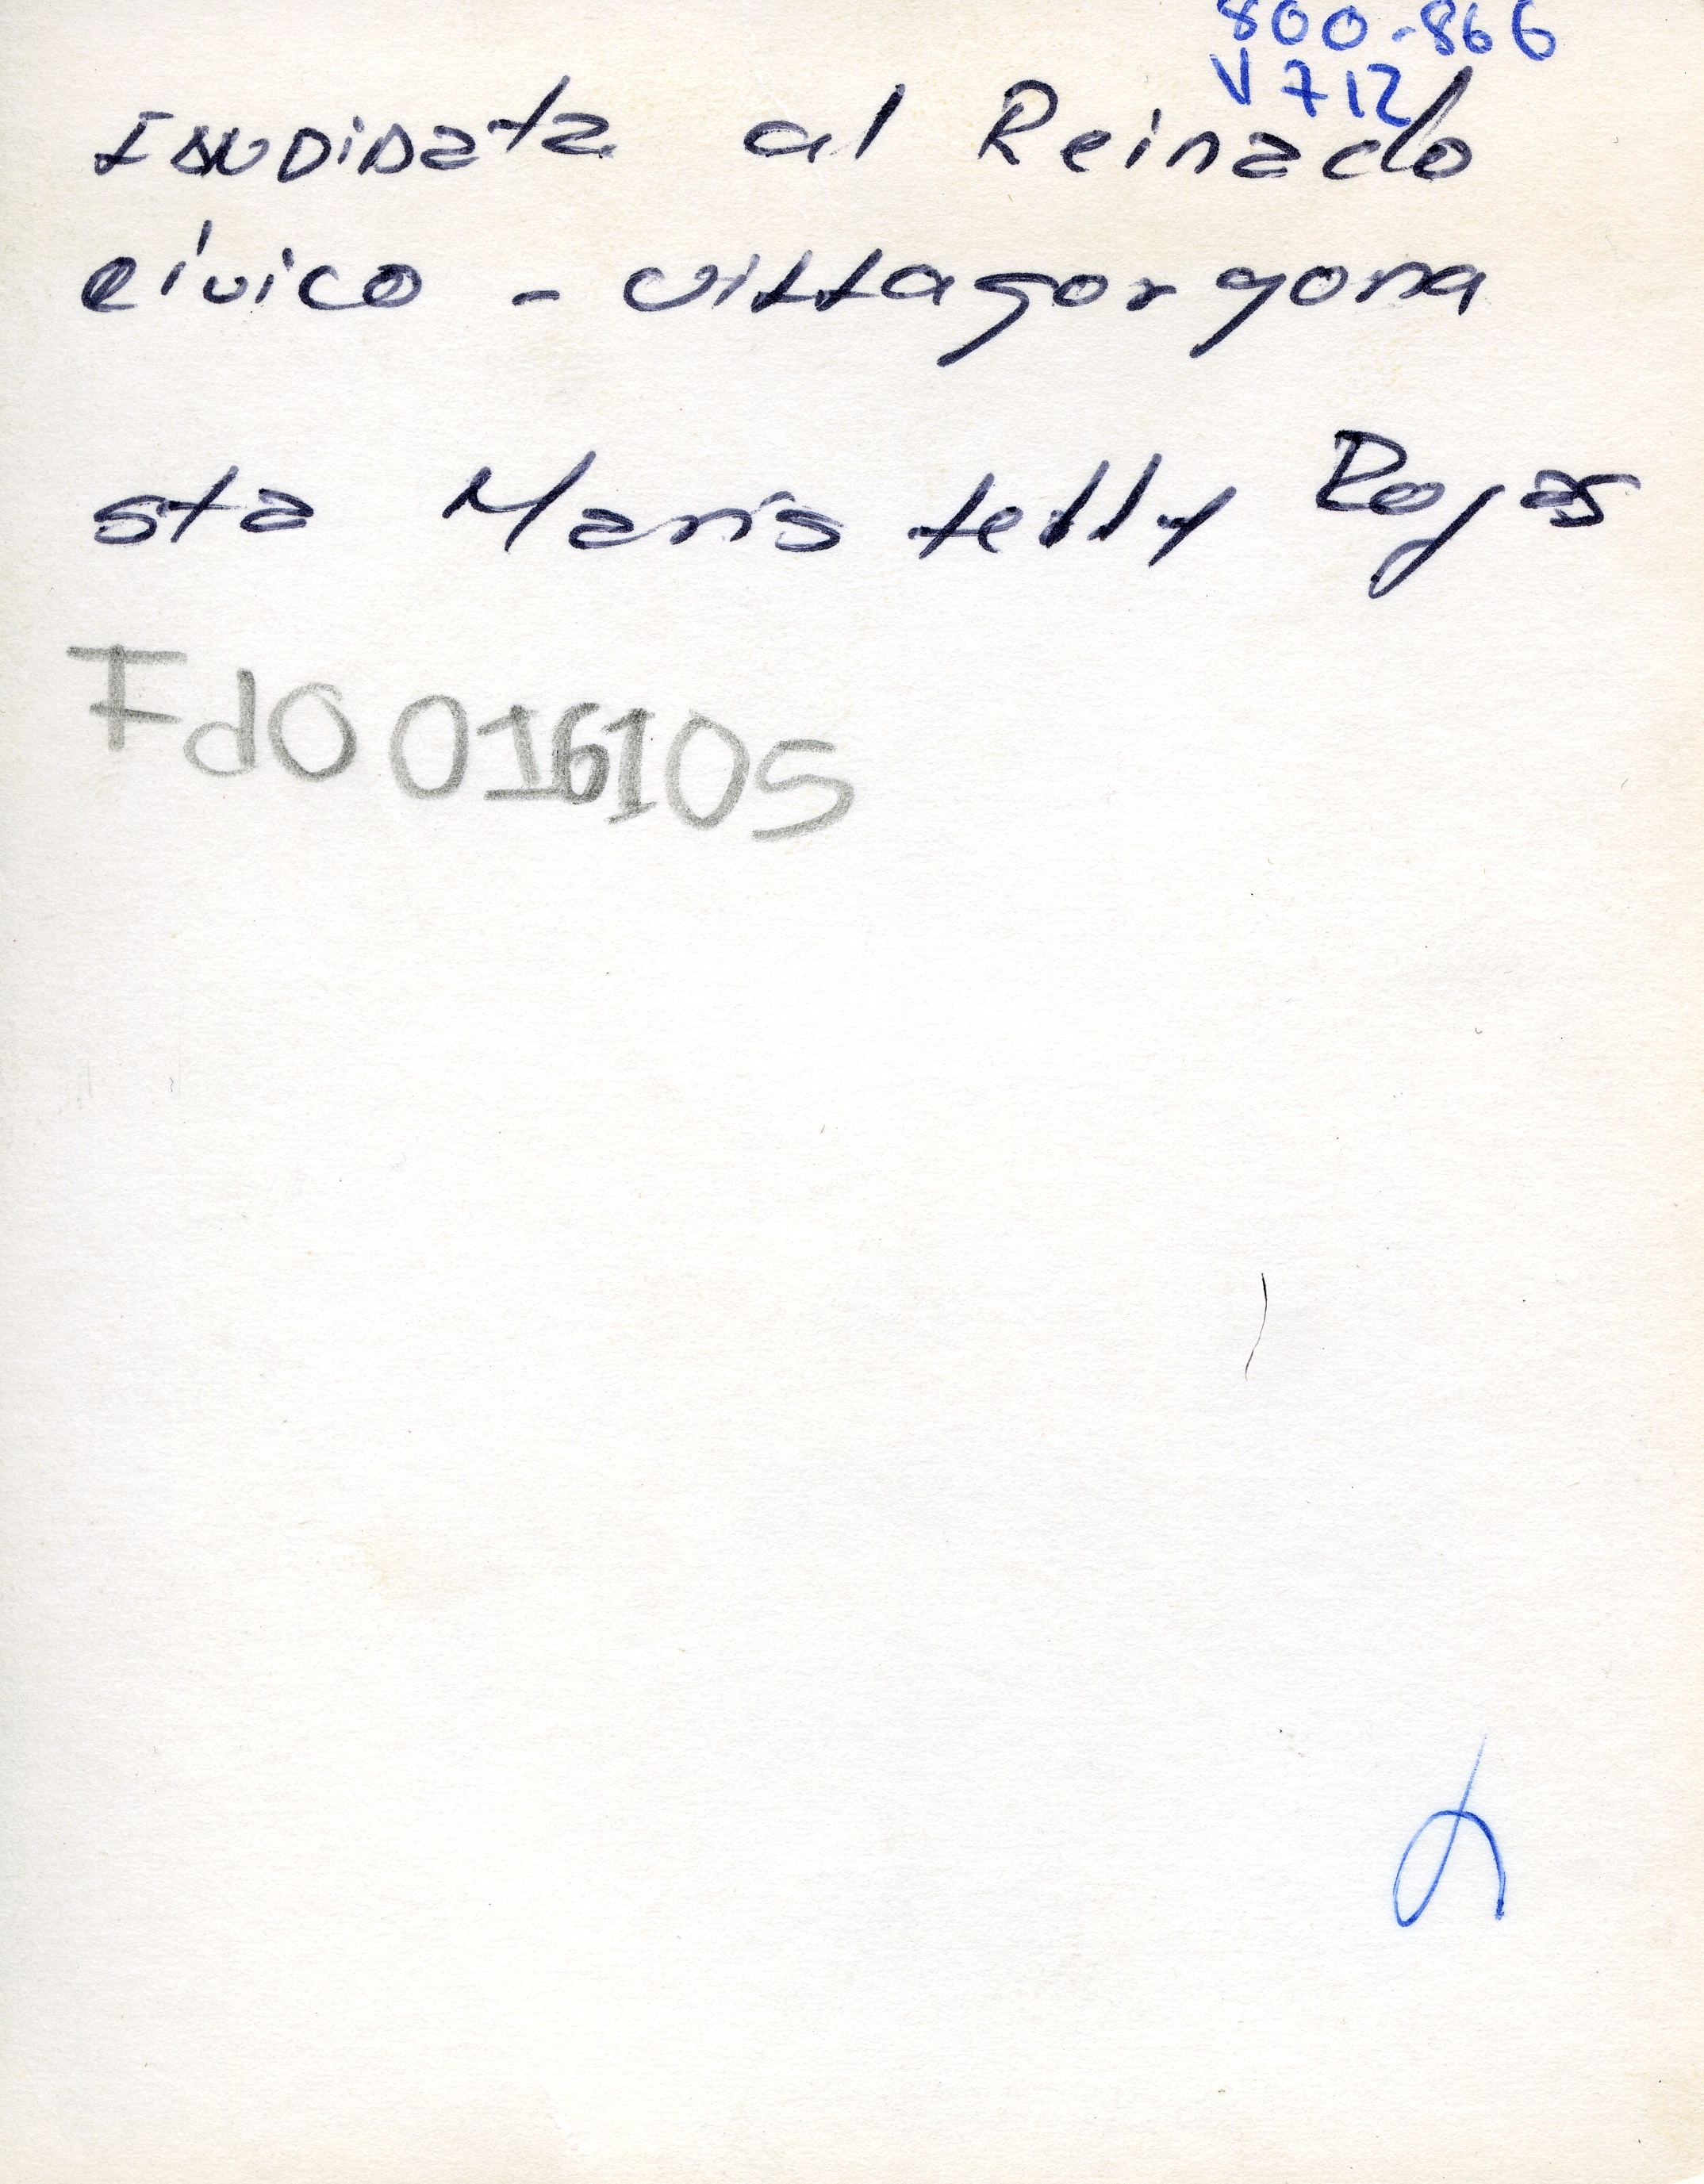 800-866
V712
al Reinado
cívico - villagorgona
sta Maria telly Rojas
Fdo 016105